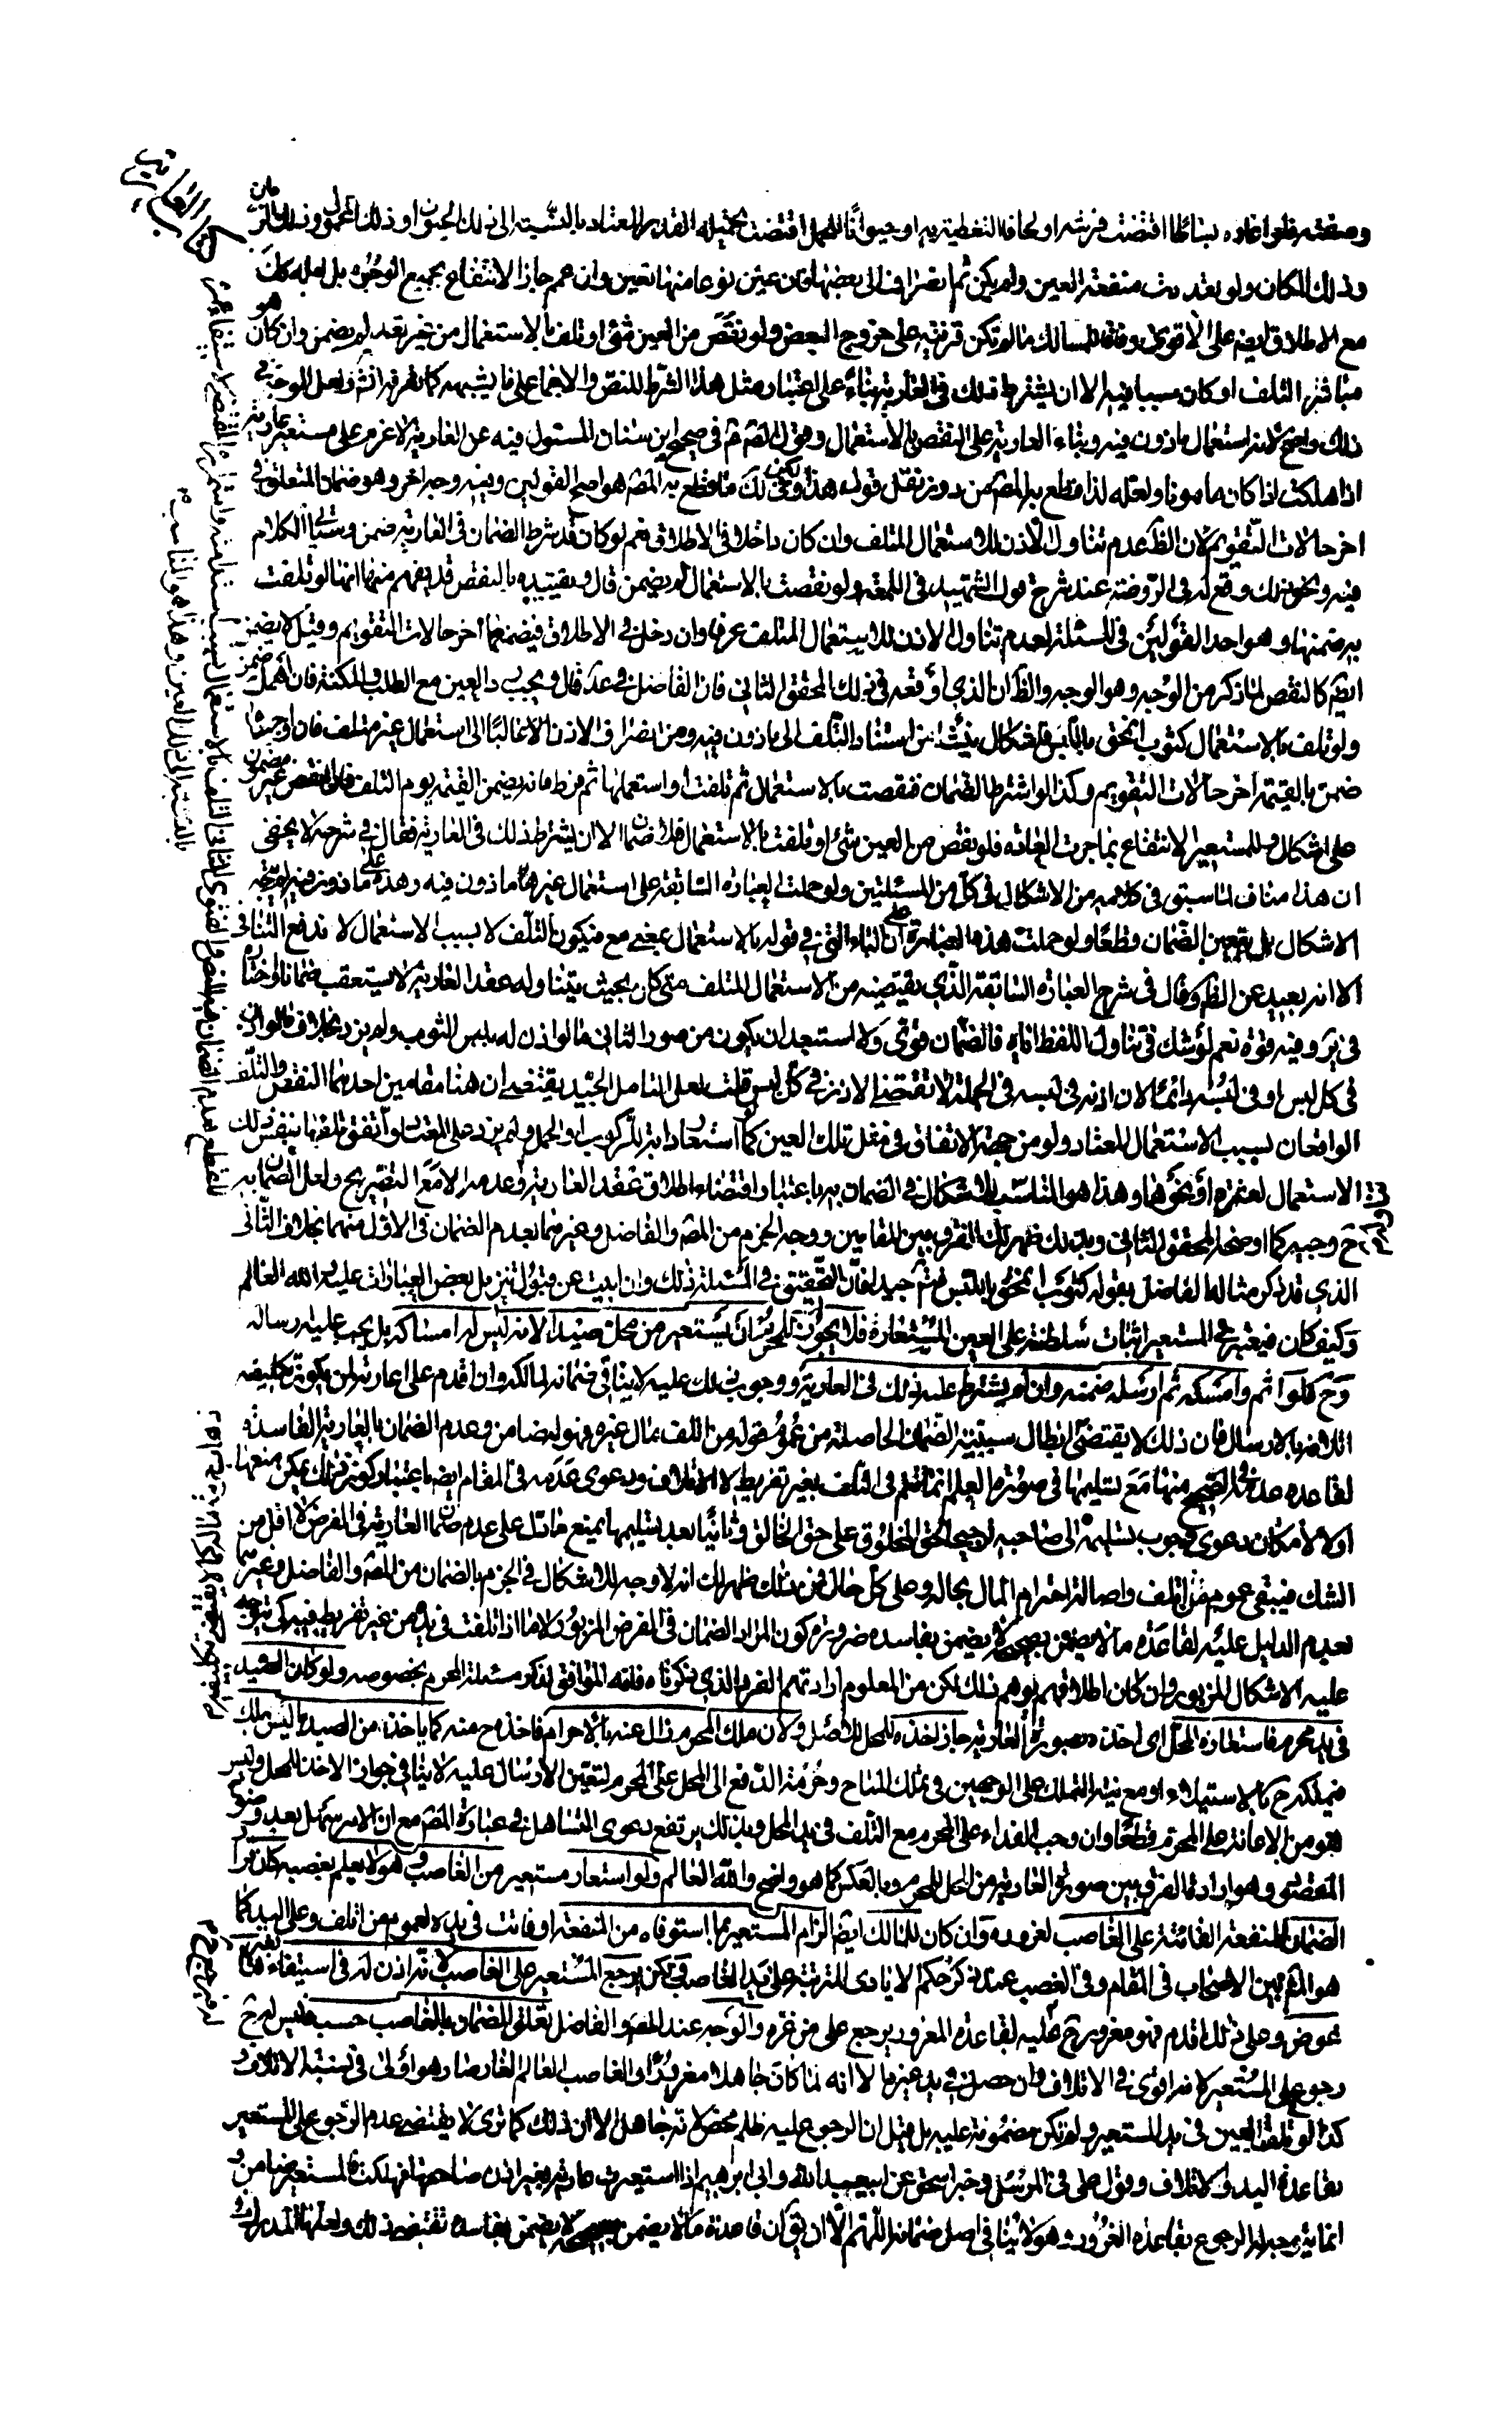 وصفته فلو اعاره بساطا اقتضت فرشه او لحافا التغطية به او حيوانا للحمل اقتضت تحميله القدر المعتاد بالنسبة الى ذلك الحيوان او ذلك المحمول وذلك الزمان
وذلك المكان ولو تعددت منفعة العين ولم يكن ثم انصراف الى بعضها فان عين نوعا منها تعين وان عمم جاز الانتفاع بجميع الوجوه بل لعله كك
مع الاطلاق ايضا على الاقوى وفاقا للمسالك ما لم تكن قرينة على خروج البعض ولو نقص من العين شئ او تلف بالاستعمال من غير تعد لم يضمن وان كان هو
مباشر التلف او كان سببا فيه الا ان يشترط ذلك في العارية بناء على اعتبار مثل هذا الشرط للنص والاجماع على ما يشبهه كما تعرفه انش ولعل الوجه في
ذلك واضح لانه استعمال ماذون فيه وبناء العارية على النقص بالاستعمال وقول الص في صحيح ابن سنان المسئول فيه عن العارية لا غرم على مستعير عارية
اذا هلكت اذا كان مامونا ولعله لذا قطع به المصن من دون نقل قوله هذا ولكن في لك ما قطع به المص هو اصح القولين وفيه وجه اخر وهو ضمان المتعلق في
اخر حالات التقويم لان الظ عدم تناول الاذن للاستعمال المتلف وان كان داخلا في الاطلاق نعم لو كان قد شرط الضمان في العارية ضمن وسياتي الكلام
فيه ونحو ذلك وقع له في الروضة عند شرح قول الشهيد في اللمعة ولو نقصت بالاستعمال لم يضمن قال وتقييده بالنقص قد يفهم منها انها لو تلفت
به ضمنها وهو احد القولين في المسئلة لعدم تناول الاذن للاستعمال المتلف عرفا وان دخل في الاطلاق فيضمنها اخر حالات التقويم وقيل لا يضمن
ايض كالنقص لما ذكر من الوجه وهو الوجه والظ ان الذي اوقعه في ذلك المحقق الثاني فان الفاضل في عد قال ويجب رد العين مع الطلب والمكنة فان اهمل ضمن
ولو تلف بالاستعمال كثوب انمحق باللبس فاشكال ينشأ من استناد التلف الى ماذون فيه ومن انصراف الاذن الا غالبا الى استعمال غير متلف فان اوجبنا
ضمن بالقيمة اخر حالات التقويم وكذا لو اشترط الضمان فنقصت بالاستعمال ثم تلفت او استعملها ثم فرط فانه يضمن القيمة يوم التلف فالنقص غير مضمون
على اشكال وللمستعير الانتفاع بما جرت العادة فلو نقص من العين شئ او تلفت بالاستعمال فلا ضمان الا ان يشترط ذلك في العارية فقال في شرحه لا يخفى
ان هذا مناف لما سبق في كلامه من الاشكال في كل من المسئلتين ولو حملت العبارة السابقة على استعمال غير ماذون فيه وهذه على ماذون فيه لم يتجه
الاشكال بل يتعين الضمان قطعا ولو حملت هذه العبارة على ان الباء التي في قوله بالاستعمال بمعنى مع فيكون التلف لا بسبب الاستعمال لا ندفع التنافي
الا انه بعيد عن الظ وقال في شرح العبارة السابقة الذي يقتضيه من الاستعمال للمتلف متى كان بحيث يتناوله عقد العارية لا يستعقب ضمانا واختاره
في ير وفيه قوة نعم لو شك في تناول اللفظ اياه فالضمان قوي ولا استبعد ان يكون من صور الثاني ما لو اذن له بلبس الثوب ولم يزد بخلاف ما لو اذن
في كل لبس او في لبسه دائما لان اذنه في لبسه في الجملة لا تقتضي الاذن في كل لبس قلت لعل التامل الجيد يقتضي ان هنا مقامين احدهما النقص والتلف
الواقعان بسبب الاستعمال المعتاد ولو من جهة الاتفاق في مثل تلك العين كما استعار دابة للركوب او الحمل ولم يزد على المعتاد واتفق تلفها بنفس ذلك
الاستعمال لعثرة او نحوها وهذا هو المناسب للاشكال في الضمان به باعتبار اقتضاء اطلاق عقد العارية وعدمه الا مع التصريح ولعل الضمان به
ح وجيه كما اوضحه المحقق الثاني وبذلك ظهر لك الفرق بين المقامين ووجه الجزم من المص والفاضل وغيرهما بعدم الضمان في الاول منهما بخلاف الثاني
الذي قد ذكر مثاله الفاضل بقوله كثوب انمحق باللبس فتأمل جيدا فان التحقيق في المسئلة ذلك وان ابيت عن قبول تنزيل بعض العبارات عليه والله العالم
وكيف كان فيعتبر في المستعير اثبات سلطنة على العين المستعارة فلا يجوز للمحرم ان يستعير من محل صيدا لانه ليس له امساكه بل يجب عليه رساله
وح فلو اثم وامسكه ثم ارسله ضمنه وان لم يشترط عليه ذلك في العارية ووجوب ذلك عليه لا ينافي ضمانه لمالكه وان اقدم على اعارته لمن يكون تكليفه
اتلافه بالارسال فان ذلك لا يقتضي ابطال سببية الضمان الحاصلة من عموم قوله من اتلف مال غيره فهو له ضامن وعدم الضمان بالعارية الفاسدة
لقاعدة عدمه في الصحيح منها مع تسليمها في صورة العلم انما تسلم في التلف بغير تفريط لا الاتلاف ودعوى عدمه في المقام ايضا باعتبار كونه يمكن منعها
اولا لامكان دعوى وجوب تسليمه الى صاحبه ترجيحا لحق المخلوق على حق الخالق وثانيا بعد تسليمها بمنع ما دل على عدم ضمان العارية في الفرض لا اقل من
الشك فيبقى عموم من اتلف واصالة احترام المال بحاله وعلى كل حال فمن ذلك ظهر لك انه لا وجه للاشكال في الجزم بالضمان من المص والفاضل وغيرهما
بعدم الدليل عليه لقاعدة ما لا يضمن بصحيحه لا يضمن بفاسده ضرورة كون المراد الضمان في الفرض المزبور لا ما اذا تلفت في يده من غير تفريط فيه كي يتوجه
عليه الاشكال المزبور وان كان اطلاقهم يوهم ذلك لكن من المعلوم ارادتهم الفرد الذي ذكرناه فانه الموافق لذكر مسئلة المحرم بخصوصه ولو كان الصيد
في يد محرم فاستعاره المحل اي اخذه بصورة العارية جاز اخذه للمحل للاصل ولان ملك المحرم زال عنه بالاحرام فاخذه ح منه كما ياخذ من الصيد ما ليس بملك
فيملكه ح بالاستيلاء او مع نية التملك على الوجهين في تملك المباح وحرمة الدفع الى المحل على المحرم لتعين الارسال عليه لا ينافي جواز الاخذ للمحل وليس
هو من الاعانة على المحرم قطعا وان وجب الفداء على المحرم مع التلف في يد المحل وبذلك يرتفع دعوى التساهل في عبارة المص مع ان الامر سهل بعد وضوح
المقصد وهو ارادة الفرق بين صورة العارية من المحل للمحرم وبالعكس كما هو واضح والله العالم ولو استعار مستعير من الغاصب وهو لا يعلم بغصبه كان قرار
الضمان للمنفعة الفائتة على الغاصب لغروره وان كان للمالك ايضا الزام المستعير بما استوفاه من المنفعة او فاتت في يده لعموم من اتلف وعلى اليد كما
هو المش بين الاصحاب في المقام وفي الغصب عند ذكر حكم الايادي المترتبة على يد الغاصب ولكن يرجع المستعير على الغاصب لانه اذن له في استيفاء بغير
عوض وعلى ذلك اقدم فهو مغرور يرجع عليه لقاعدة المغرور يرجع على من غره والوجه عند المص والفاضل تعلق الضمان بالغاصب حسب فليس له ح
رجوع على المستعير لانه اقوى في الاتلاف وان حصل في يد غيره الا انه لما كان جاهلا مغرورا والغاصب العالم الغار صار هو اولى في نسبة الاتلاف
كذا لو تلفت العين في يد المستعير ولم تكن مضمونة عليه بل قيل ان الرجوع عليه ظلم محض لانه جاهل الا ان ذلك كما ترى لا يقتضي عدم الرجوع على المستعير
بقاعدة اليد والاتلاف وقول علي في المرسل وخبر اسحق عن ابي عبد الله وابي ابراهيم اذا استعيرت عارية بغير اذن صاحبها فهلكت فالمستعير ضامن و
انما يتوجه له الرجوع بقاعدة الغرور وهو لا ينافي اصل ضمانه اللهم الا ان يق ان قاعدة ما لا يضمن بصحيحه لا يضمن بفاسده تقتضي ذلك ولعلها المدرك